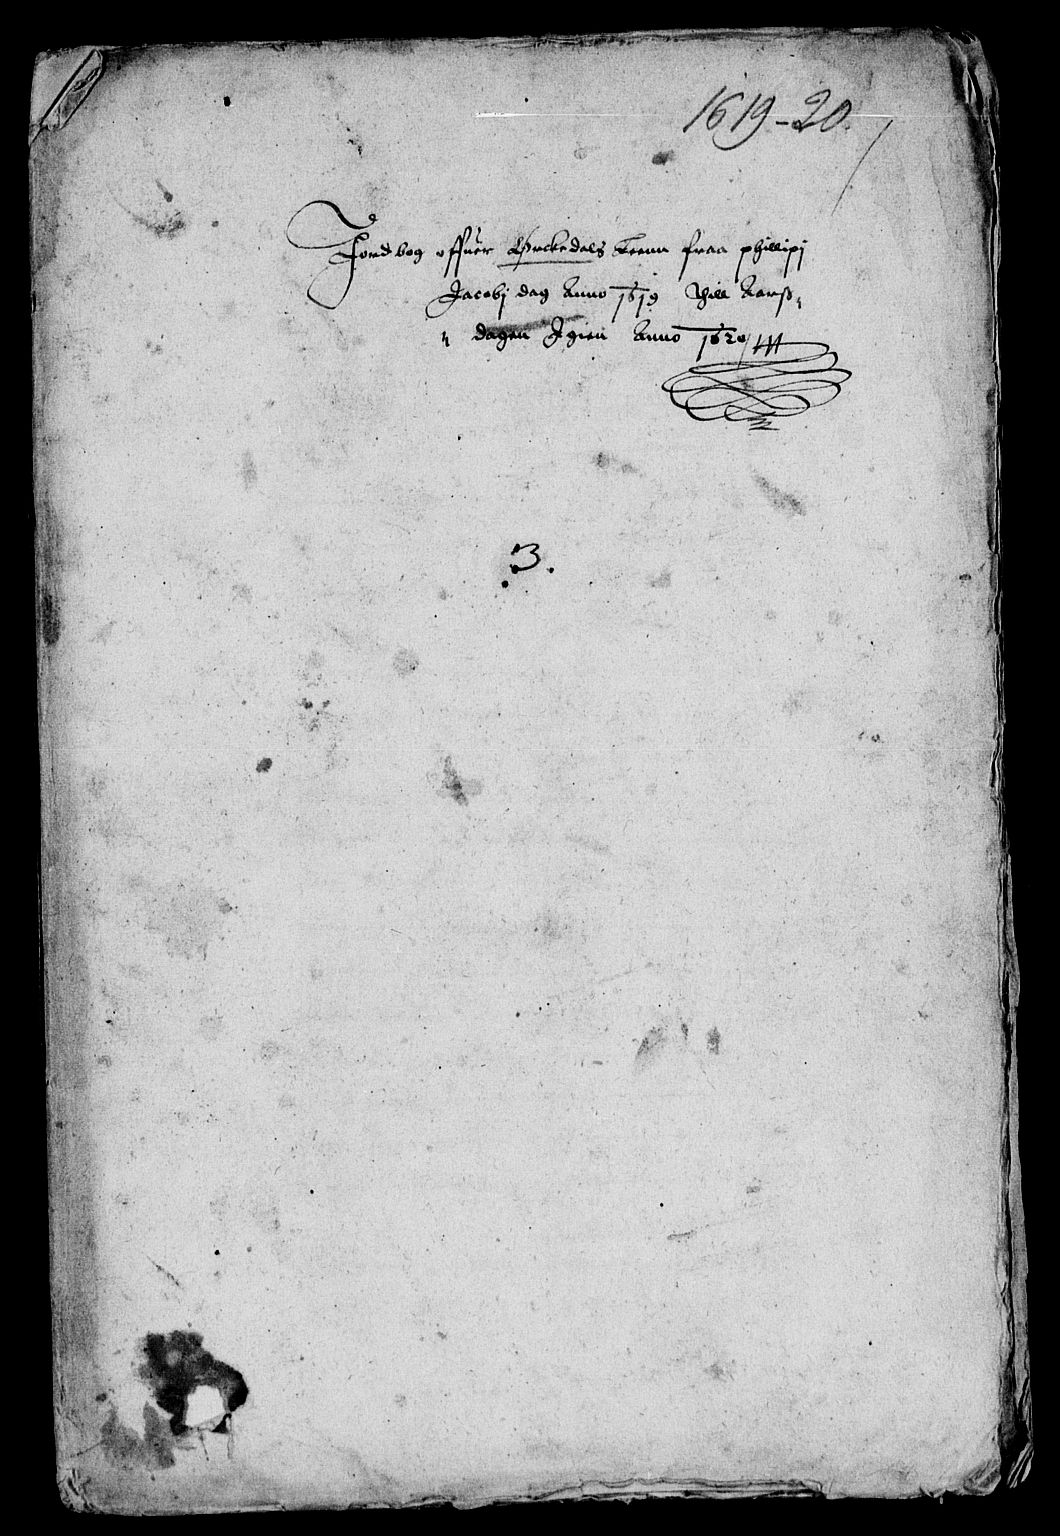 1619-20.
Jordbog offuer Orckedals Leenn fraa phillipj
Jacobj dag Anno 1619 Thill Aarß-
dagen Igien Anno 1620
.3.